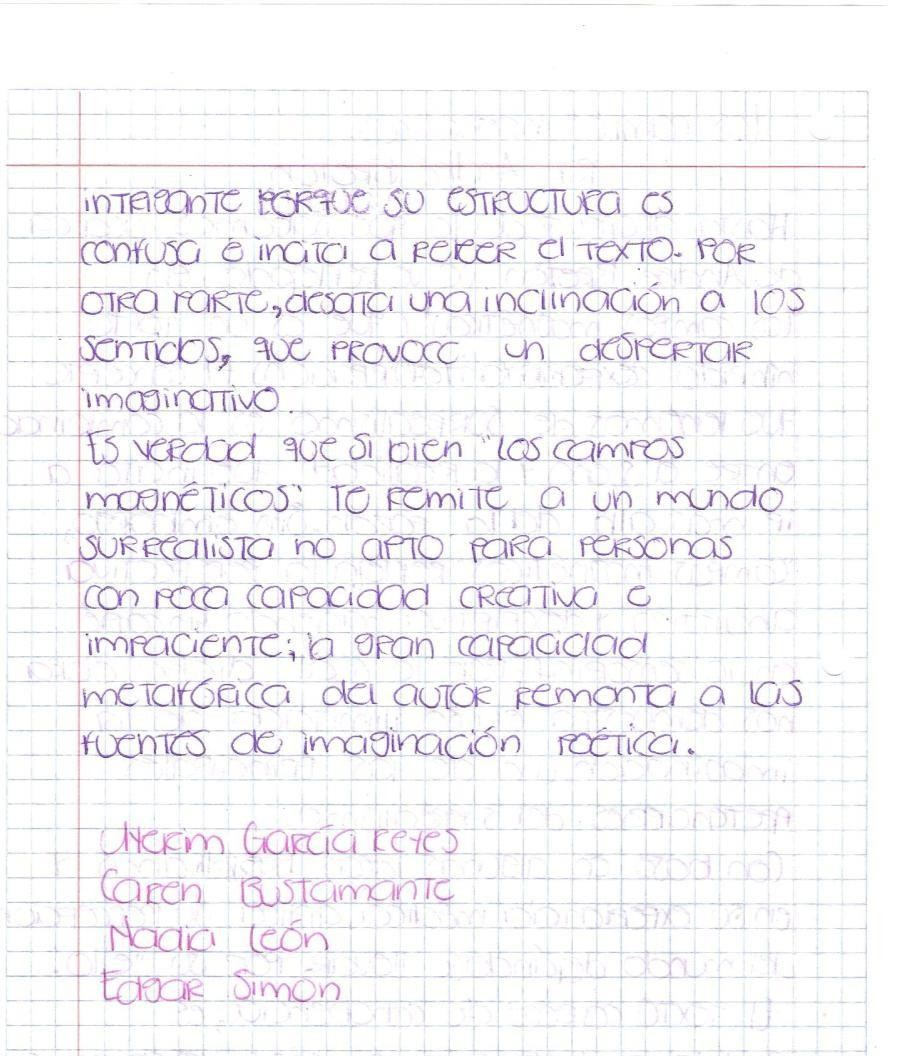 intrigante porque su estructura es
confusa e incita a releer el texto. Por
otra parte, desata una inclinación a los
sentidos, que provoca un despertar
imaginativo.
Es verdad que si bien "los campos
magnéticos" te remite a un mundo
surrealista no apto para personas
con poca capacidad creativa e
impaciente; la gran capacidad
metafórica del autor remonta a las
fuentes de imaginación poética.
García Reyes
Caren Bustamante
Nadia León
Edgar Simón